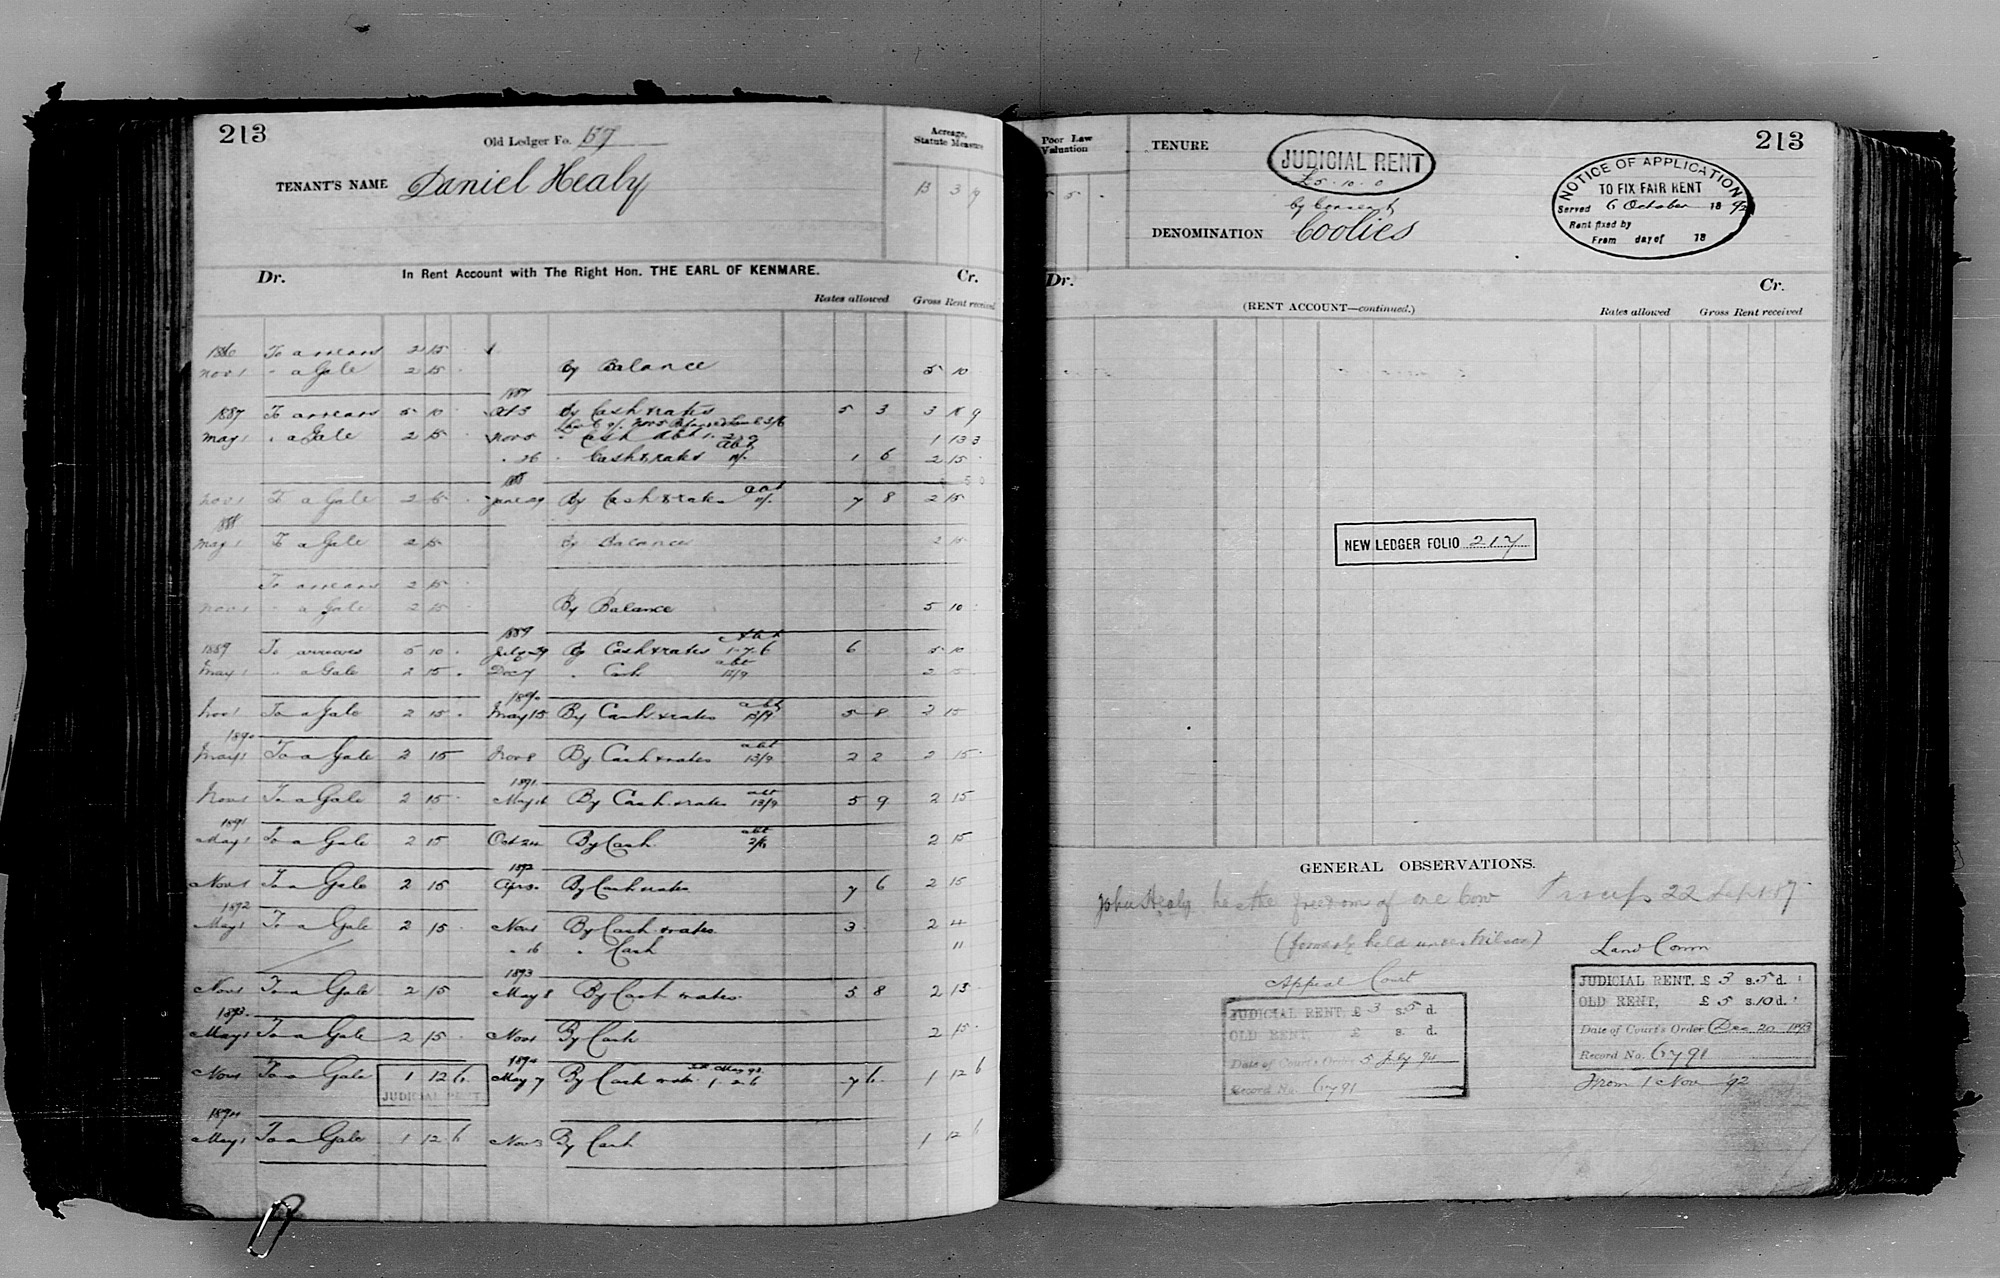 213
Old Ledger Fo. 157
Acreage, Statute Measure
TENANT'S NAME Daniel Healy
13 3 19
Dr. In Rent Account with The Right Hon. THE EARL OF KENMARE. Cr.
Rates allowed Gross Rent received
1886 To arrears 2 15
Nov 1 " a Gale 2 15 By Balance 5 10
1887
1887 To arrears 5 10 Oct 5 By Cash & rates 5 3 3 18 9
May 1 " a Gale 2 15 Nov 5 " Cash abt 1 13 3
" 26 " Cash & rates abt 11/. 1 6 2 15
1888
Nov 1 To a Gale 2 15 June 29 By Cash & rates abt 11/. 7 8 2 15
1888
May 1 To a Gale 2 15 By Balance 2 15
To arrears 2 15
Nov 1 " a Gale 2 15 By Balance 5 10
1889
1889 To arrears 5 10 July 29 By Cash & rates abt 1-7-6 6 5 10
May 1 " a Gale 2 15 Dec 7 " Cash abt 13/9 2 15
1890
Nov 1 To a Gale 2 15 May 15 By Cash & rates abt 13/9 5 8 2 15
1890
May 1 To a Gale 2 15 Nov 8 By Cash & rates abt 13/9 2 2 2 15
1891
Nov 1 To a Gale 2 15 May 16 By Cash & rates abt 13/9 5 9 2 15
1891
May 1 To a Gale 2 15 Oct 24 By Cash abt 2 15
1892
Nov 1 To a Gale 2 15 Apr By Cash & rates 7 6 2 15
1892
May 1 To a Gale 2 15 Nov 1 By Cash & rates 3 2 4
" 16 " Cash 11
1893
Nov 1 To a Gale 2 15 May 8 By Cash & rates 5 8 2 15
1893
May 1 To a Gale 2 15 Nov 1 By Cash 2 15
1894
Nov 1 To a Gale 1 12 6 May 7 By Cash & rates 1-2-6 7 6 1 12 6
JUDICIAL RENT
1894
May 1 To a Gale 1 12 6 Nov 3 By Cash 1 12 6
Poor Law Valuation
5 5
TENURE
JUDICIAL RENT
£5-10-0
by Consent
DENOMINATION Coolies
NOTICE OF APPLICATION
TO FIX FAIR RENT
Served 6 October 1892
Rent fixed by
From day of 18
213
Dr. Cr.
(RENT ACCOUNT—continued.) Rates allowed Gross Rent received
NEW LEDGER FOLIO 217
GENERAL OBSERVATIONS.
John Healy has the freedom of one bow 22 Sept 87
(formerly held under)
Appeal Court
JUDICIAL RENT, £3 s. 5 d.
OLD RENT, £ s. d.
Date of Court's Order 5 July 94
Record No. 6791
Land Comm
JUDICIAL RENT, £ 3 s. 5 d.
OLD RENT, £ 5 s. 10 d.
Date of Court's Order Dec 20 1893
Record No. 6791
From 1 Nov 92